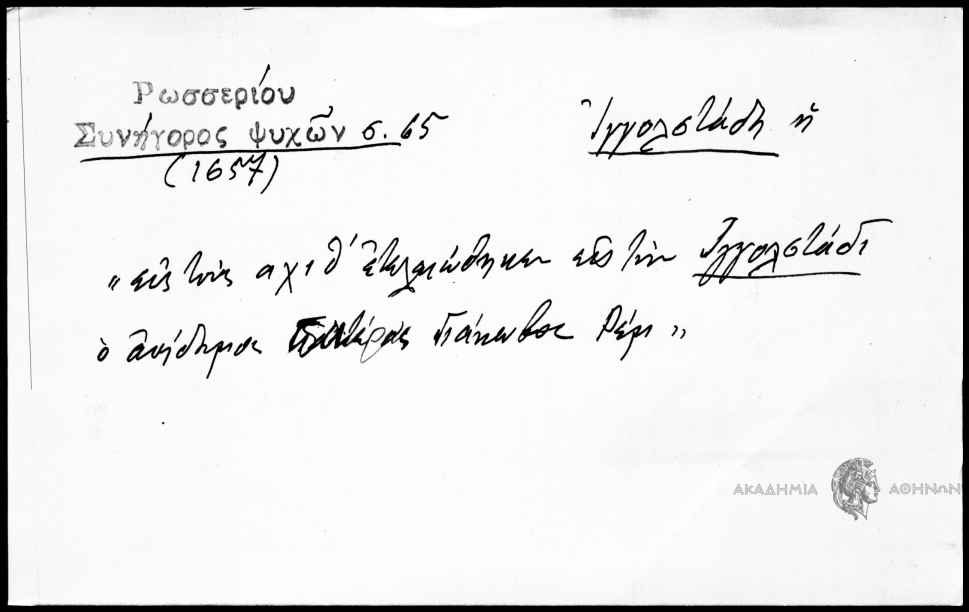 Ρωσσερίου
Συνήγορος ψυχῶν σ. 65
(1657)
Ἰγγολστάδη ἡ
"εἰς τοὺς αχιθ' ἐτελειώθηκεν εἰς τὴν Ἰγγολστάδι
ὁ ἀοίδημος Πατέρας Ἰάκωβος Ρέμ"
ΑΚΑΔΗΜΙΑ ΑΘΗΝΩΝ